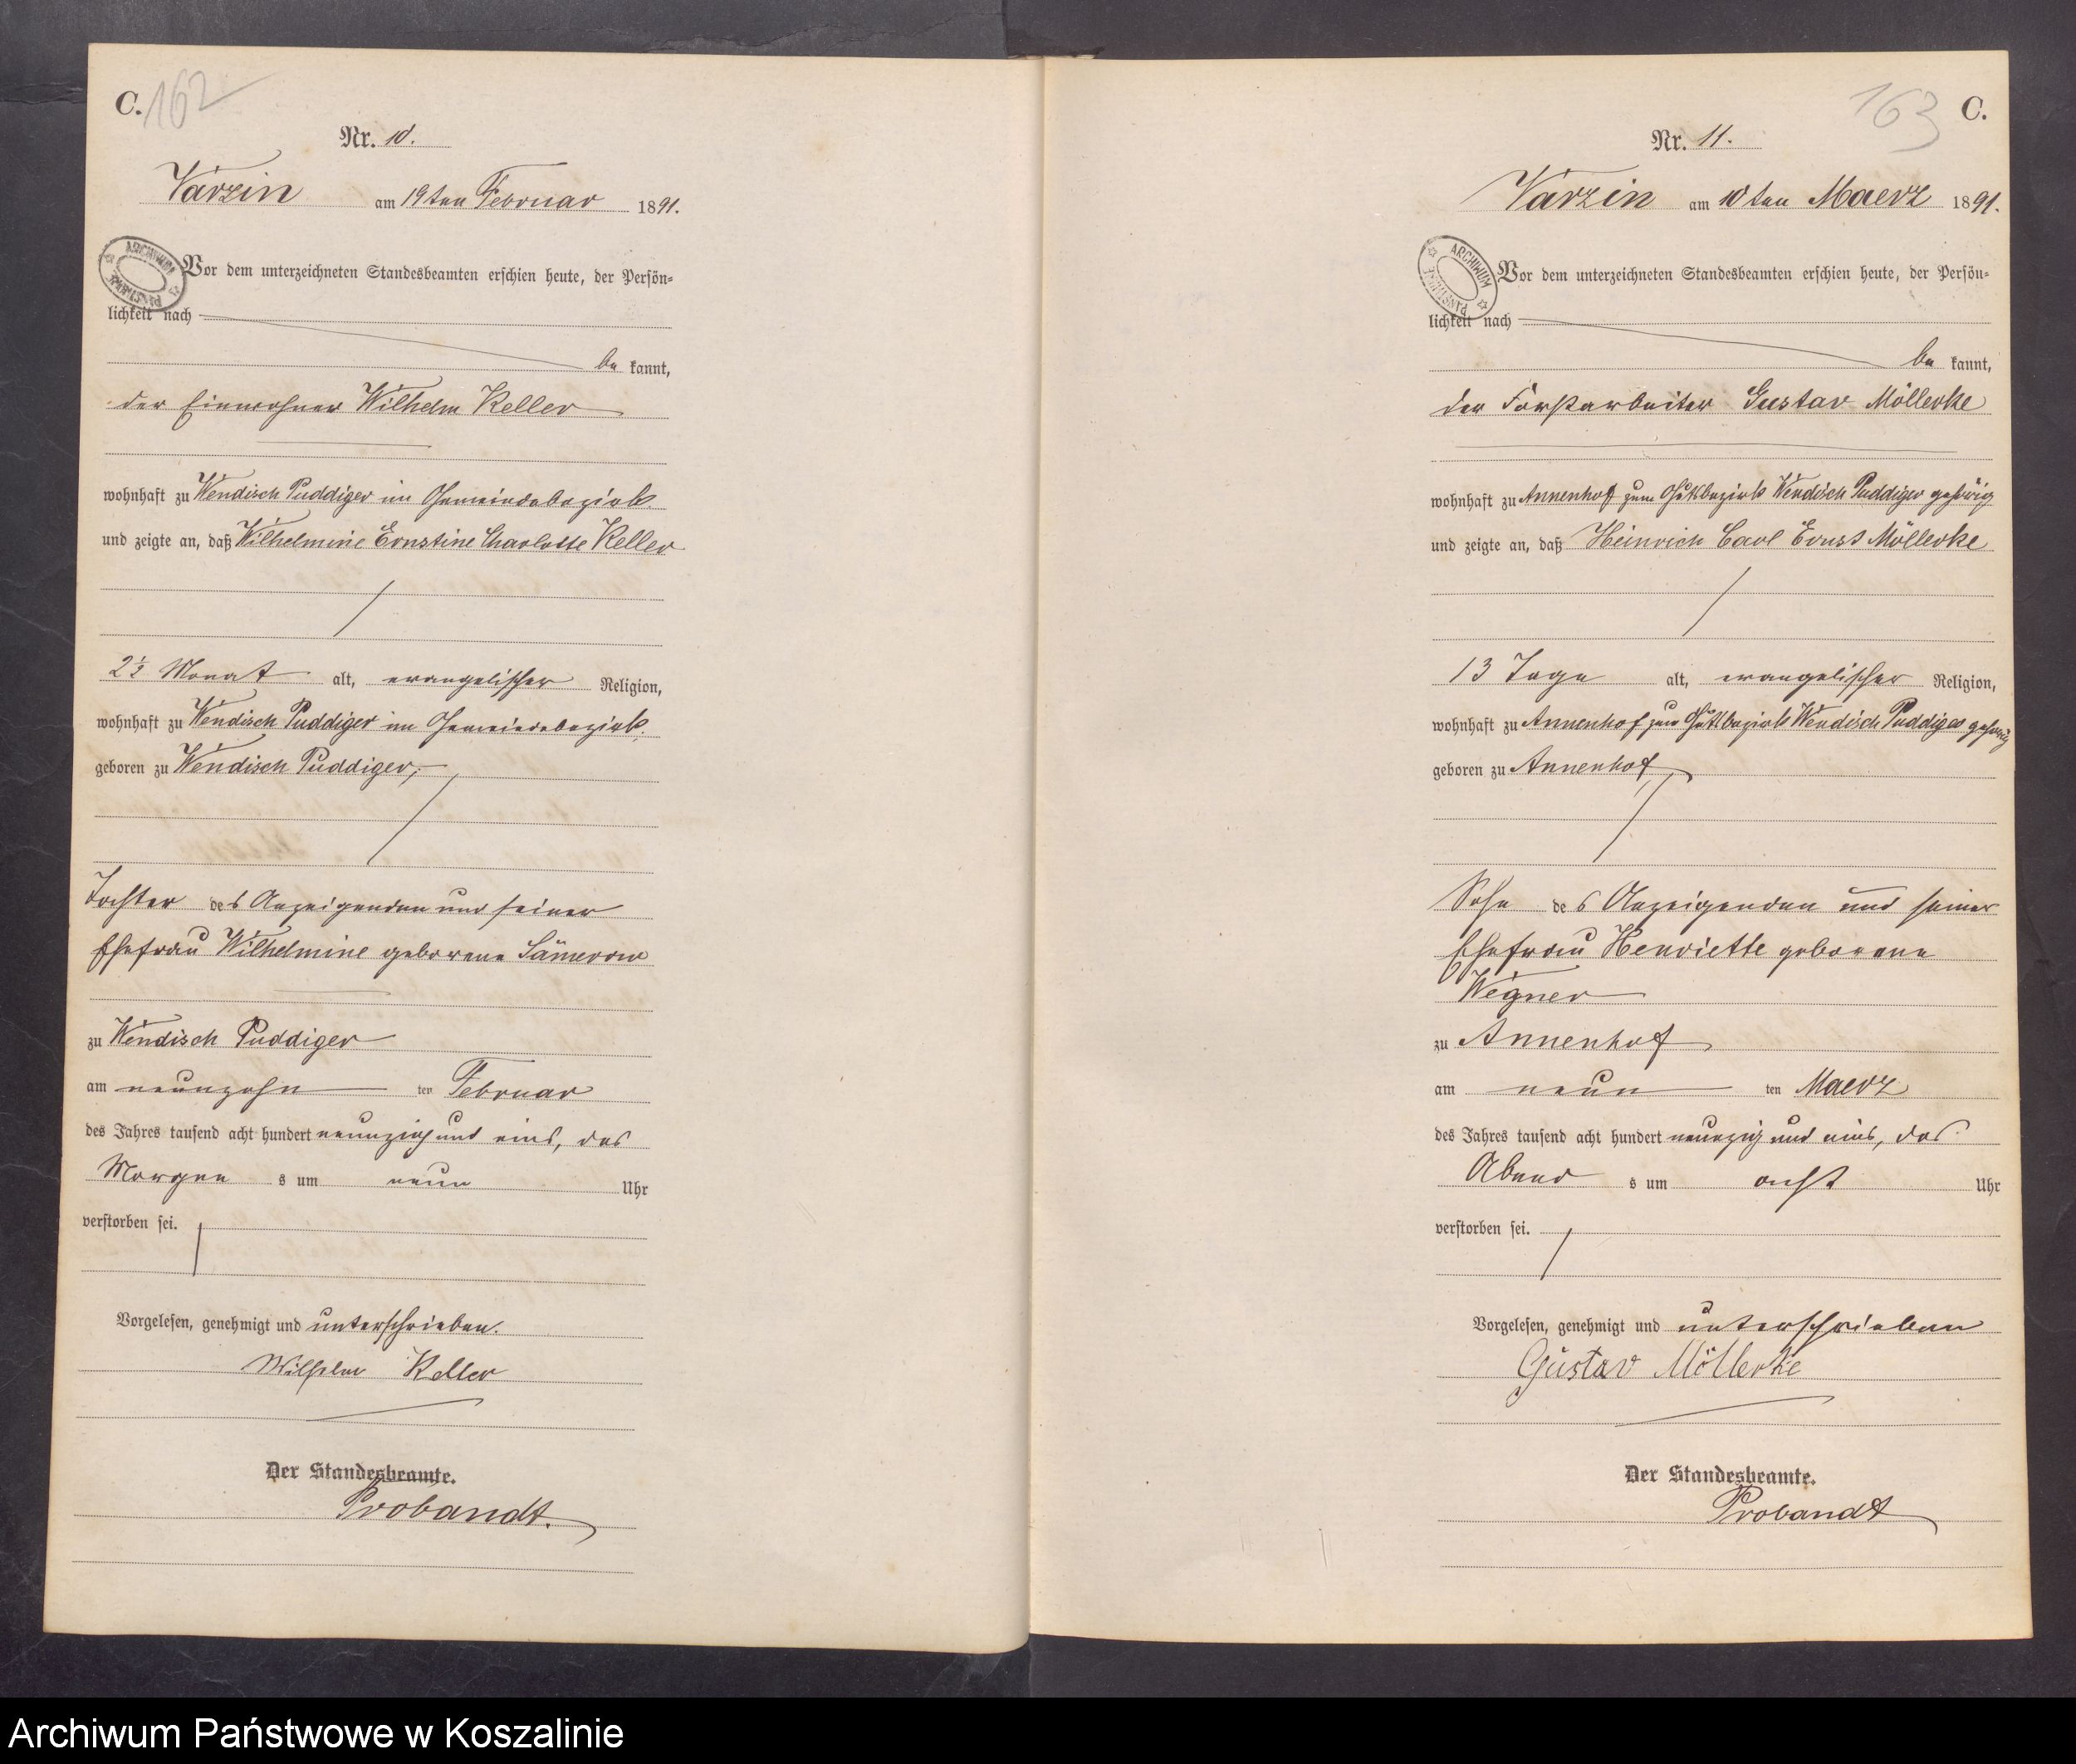 C. 162
Nr. 10.
Varzin am 19ten Februar 1891.
ARCHIWUM PAŃSTWOWE
Vor dem unterzeichneten Standesbeamten erschien heute, der Persön-
lichkeit nach
be kannt,
der Einwohner Wilhelm Keller
wohnhaft zu Wendisch Puddiger im Gemeindebezirk
und zeigte an, daß Wilhelmine Ernstine Charlotte Keller
2½ Monat alt, evangelischer Religion,
wohnhaft zu Wendisch Puddiger im Gemeindebezirk
geboren zu Wendisch Puddiger,
Tochter des Anzeigenden und seiner
Ehefrau Wilhelmine geborene
zu Wendisch Puddiger
am neunzehn ten Februar
des Jahres tausend acht hundert neunzig und eins, des
Morgen s um neun Uhr
verstorben sei.
Vorgelesen, genehmigt und unterschrieben.
Wilhelm Keller
Der Standesbeamte.
Probandt.
163 C.
Nr. 11.
Varzin am 10ten Maerz 1891.
ARCHIWUM PAŃSTWOWE
Vor dem unterzeichneten Standesbeamten erschien heute, der Persön-
lichkeit nach
be kannt,
der Forstarbeiter Gustav Möllerke
wohnhaft zu Annenhof zum Gutsbezirk Wendisch Puddiger gehörig
und zeigte an, daß Heinrich Carl Ernst Möllerke
13 Tage alt, evangelischer Religion,
wohnhaft zu Annenhof zum Gutsbezirk Wendisch Puddiger gehörig
geboren zu Annenhof,
Sohn des Anzeigenden und seiner
Ehefrau Henriette geborene
Wegner
zu Annenhof
am neun ten Maerz
des Jahres tausend acht hundert neunzig und eins, des
Abend s um acht Uhr
verstorben sei.
Vorgelesen, genehmigt und unterschrieben
Gustav Möllerke
Der Standesbeamte.
Probandt
Archiwum Państwowe w Koszalinie